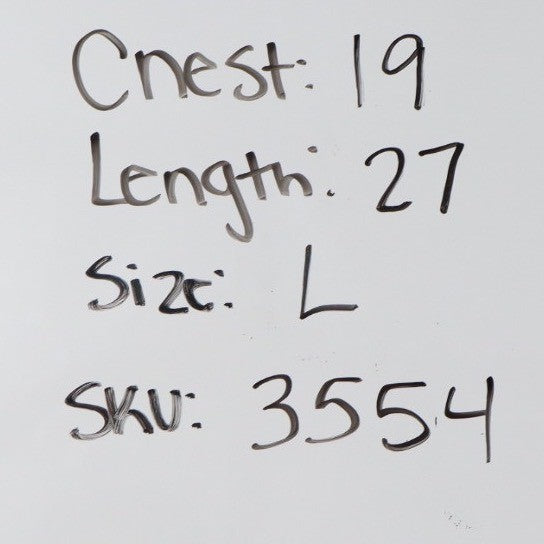 Chest: 19
Length: 27
Size: L
SKU: 3554